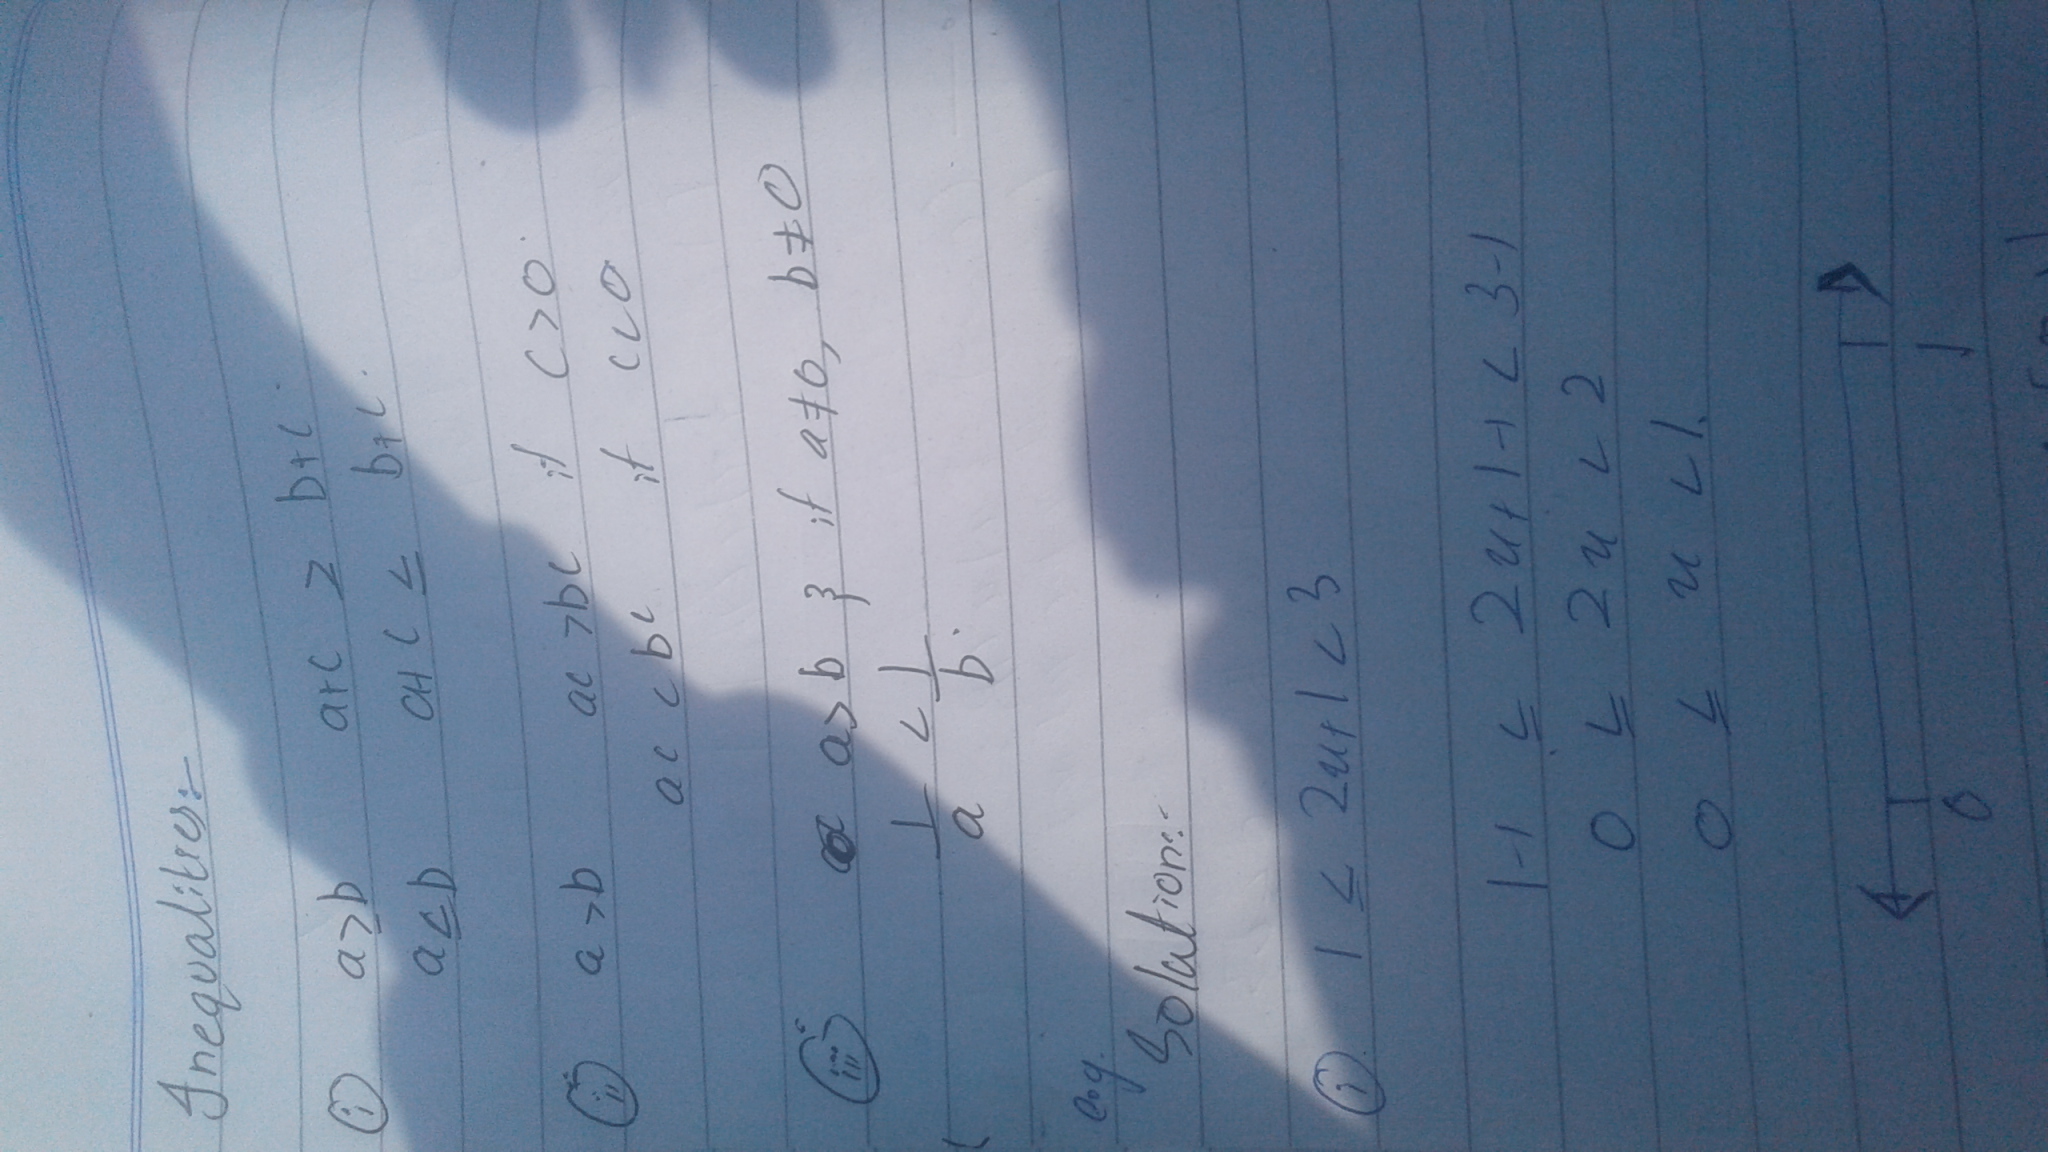 Inequalities:-
(i) a≥b a+c ≥ b+c.
a≤b a+c ≤ b+c.
(ii) a>b ac >bc if c>0.
ac <bc if c<0
(iii) a>b ; if a≠0, b≠0
1/a < 1/b.
e.g.
Solution:-
(i) 1 ≤ 2x+1<3
1-1 ≤ 2x+1-1 < 3-1
0 ≤ 2x < 2
0 ≤ x <1.
0 1